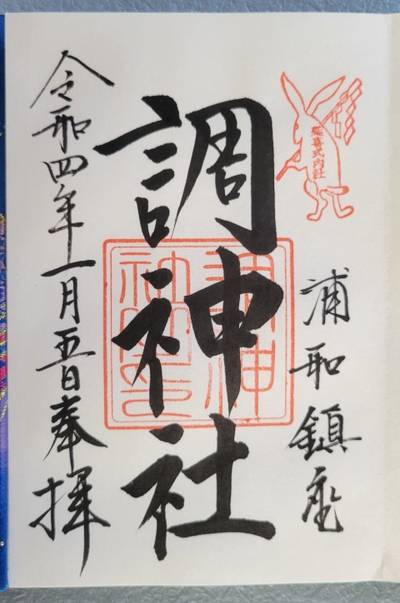 延喜式内社
浦和鎮座
調神社
調神社印
令和四年一月五日奉拝